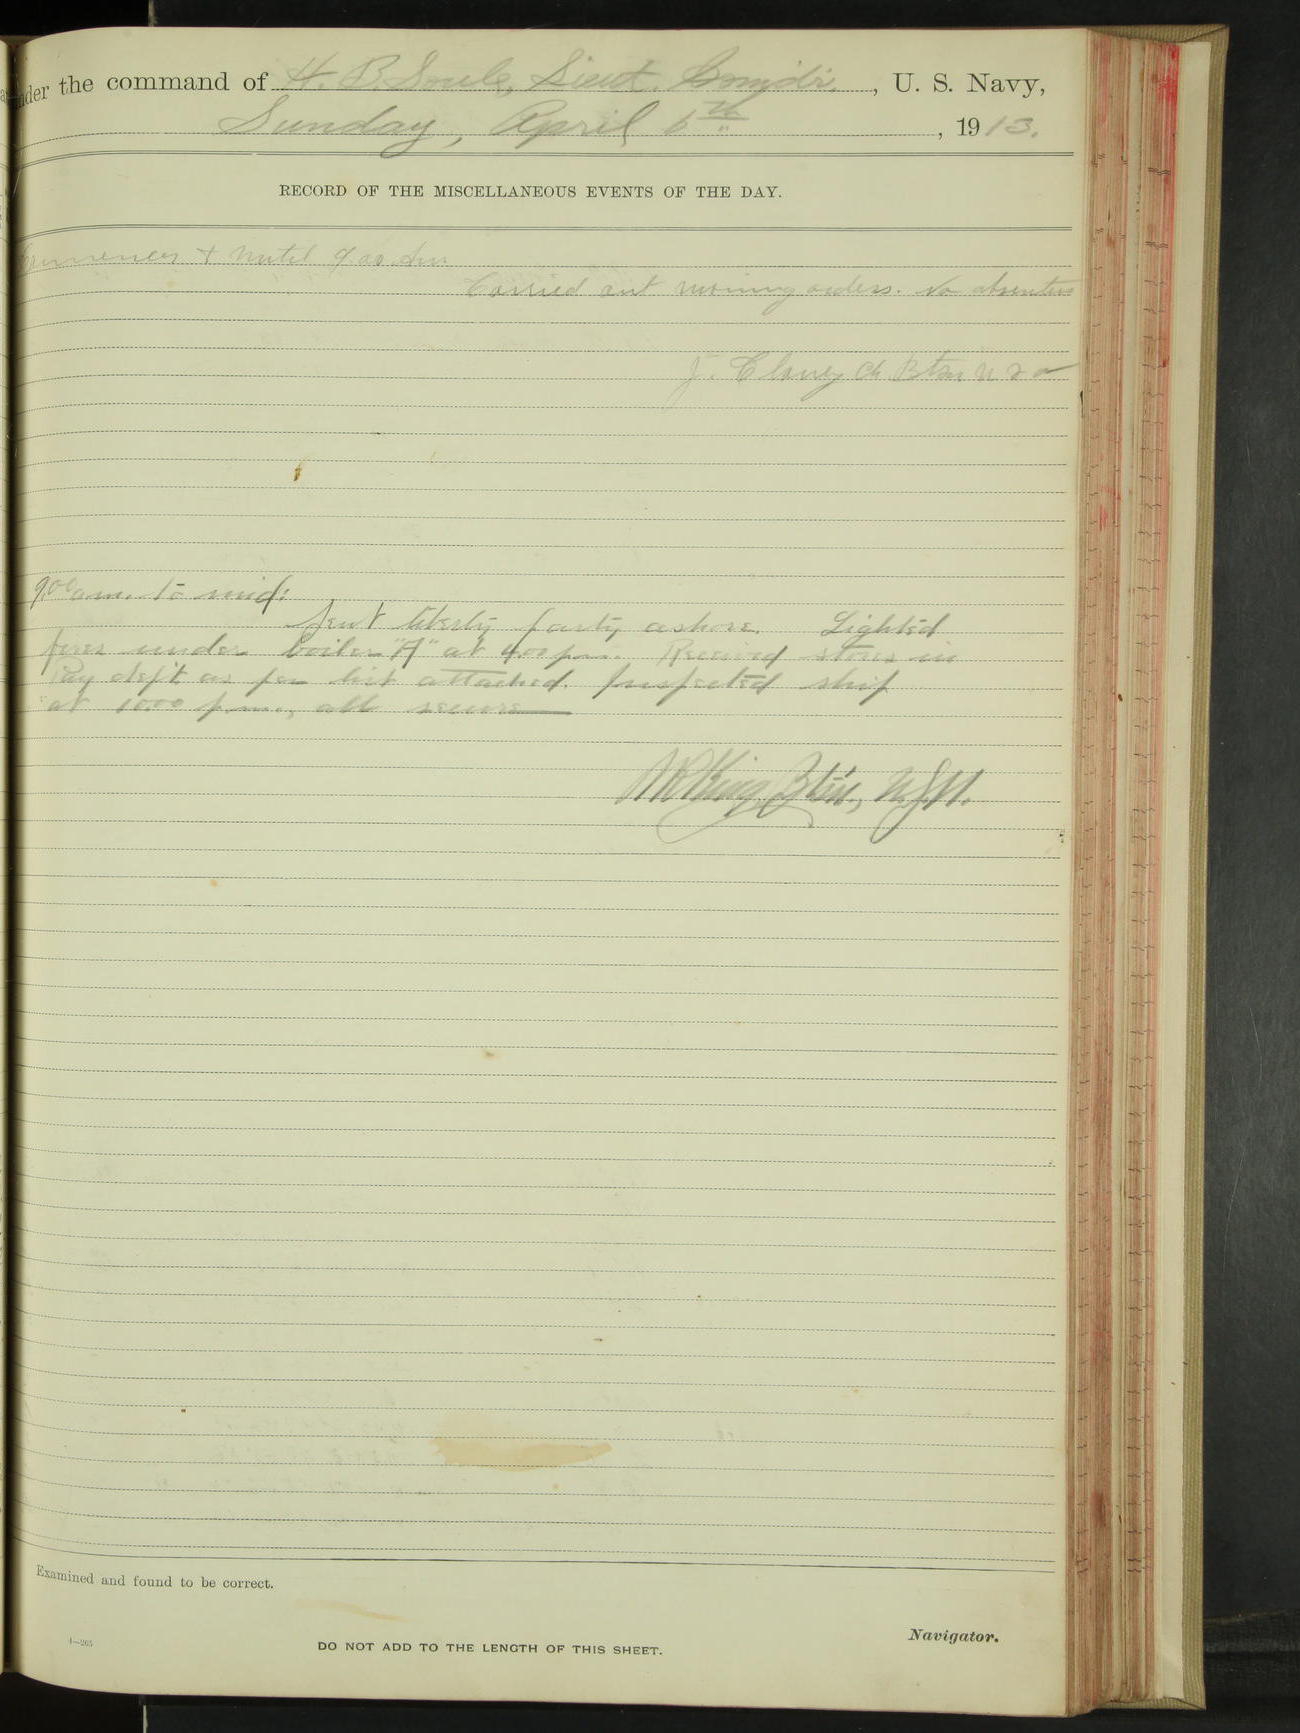 under the command of H. B. Soule, Lieut. Comdr., U. S. Navy,
Sunday, April 6th, 1913.
RECORD OF THE MISCELLANEOUS EVENTS OF THE DAY.
Commences & until 9.00 Am
Carried out morning orders. No absentees
J. Clancy Ch Btsn U S N
9.00 a.m. to mid:
Sent liberty party ashore. Lighted
fires under boiler "A" at 4.00 p.m. Received stores in
Pay dep't as per list attached. Inspected ship
at 10.00 p.m., all secure
King, Btsn., U.S.N.
Examined and found to be correct.
Navigator.
DO NOT ADD TO THE LENGTH OF THIS SHEET.